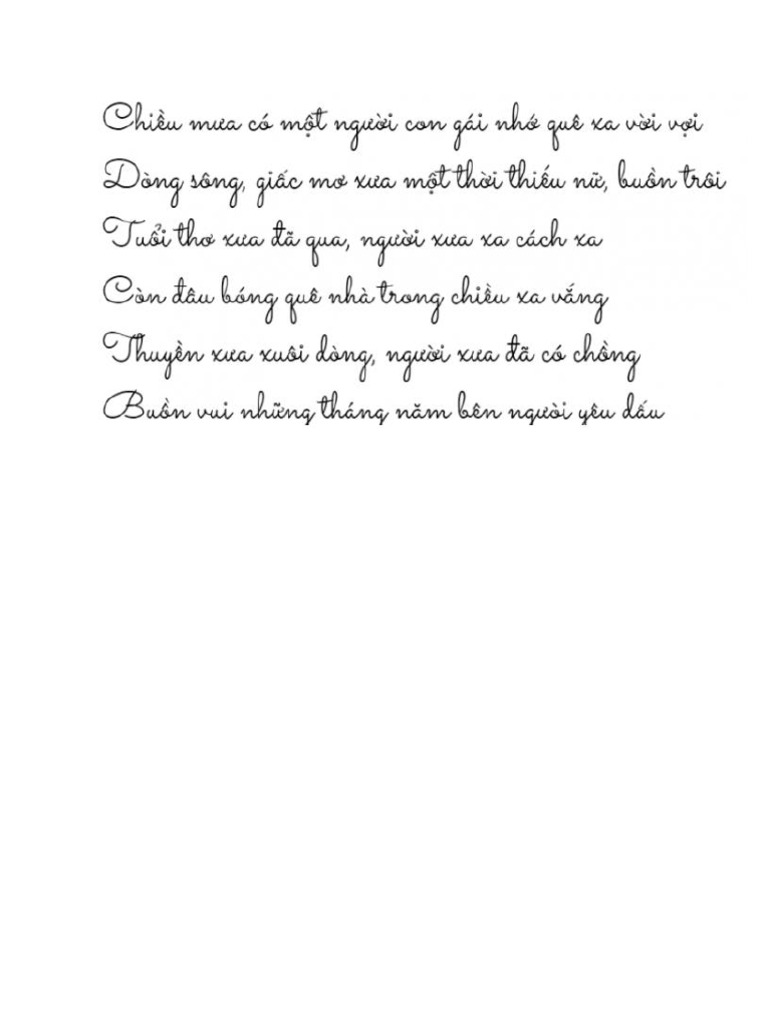 Chiều mưa có một người con gái nhớ quê xa vời vợi
Dòng sông, giấc mơ xưa một thời thiếu nữ, buồn trôi
Tuổi thơ xưa đã qua, người xưa xa cách xa
Còn đâu bóng quê nhà trong chiều xa vắng
Thuyền xưa xuôi dòng, người xưa đã có chồng
Buồn vui những tháng năm bên người yêu dấu